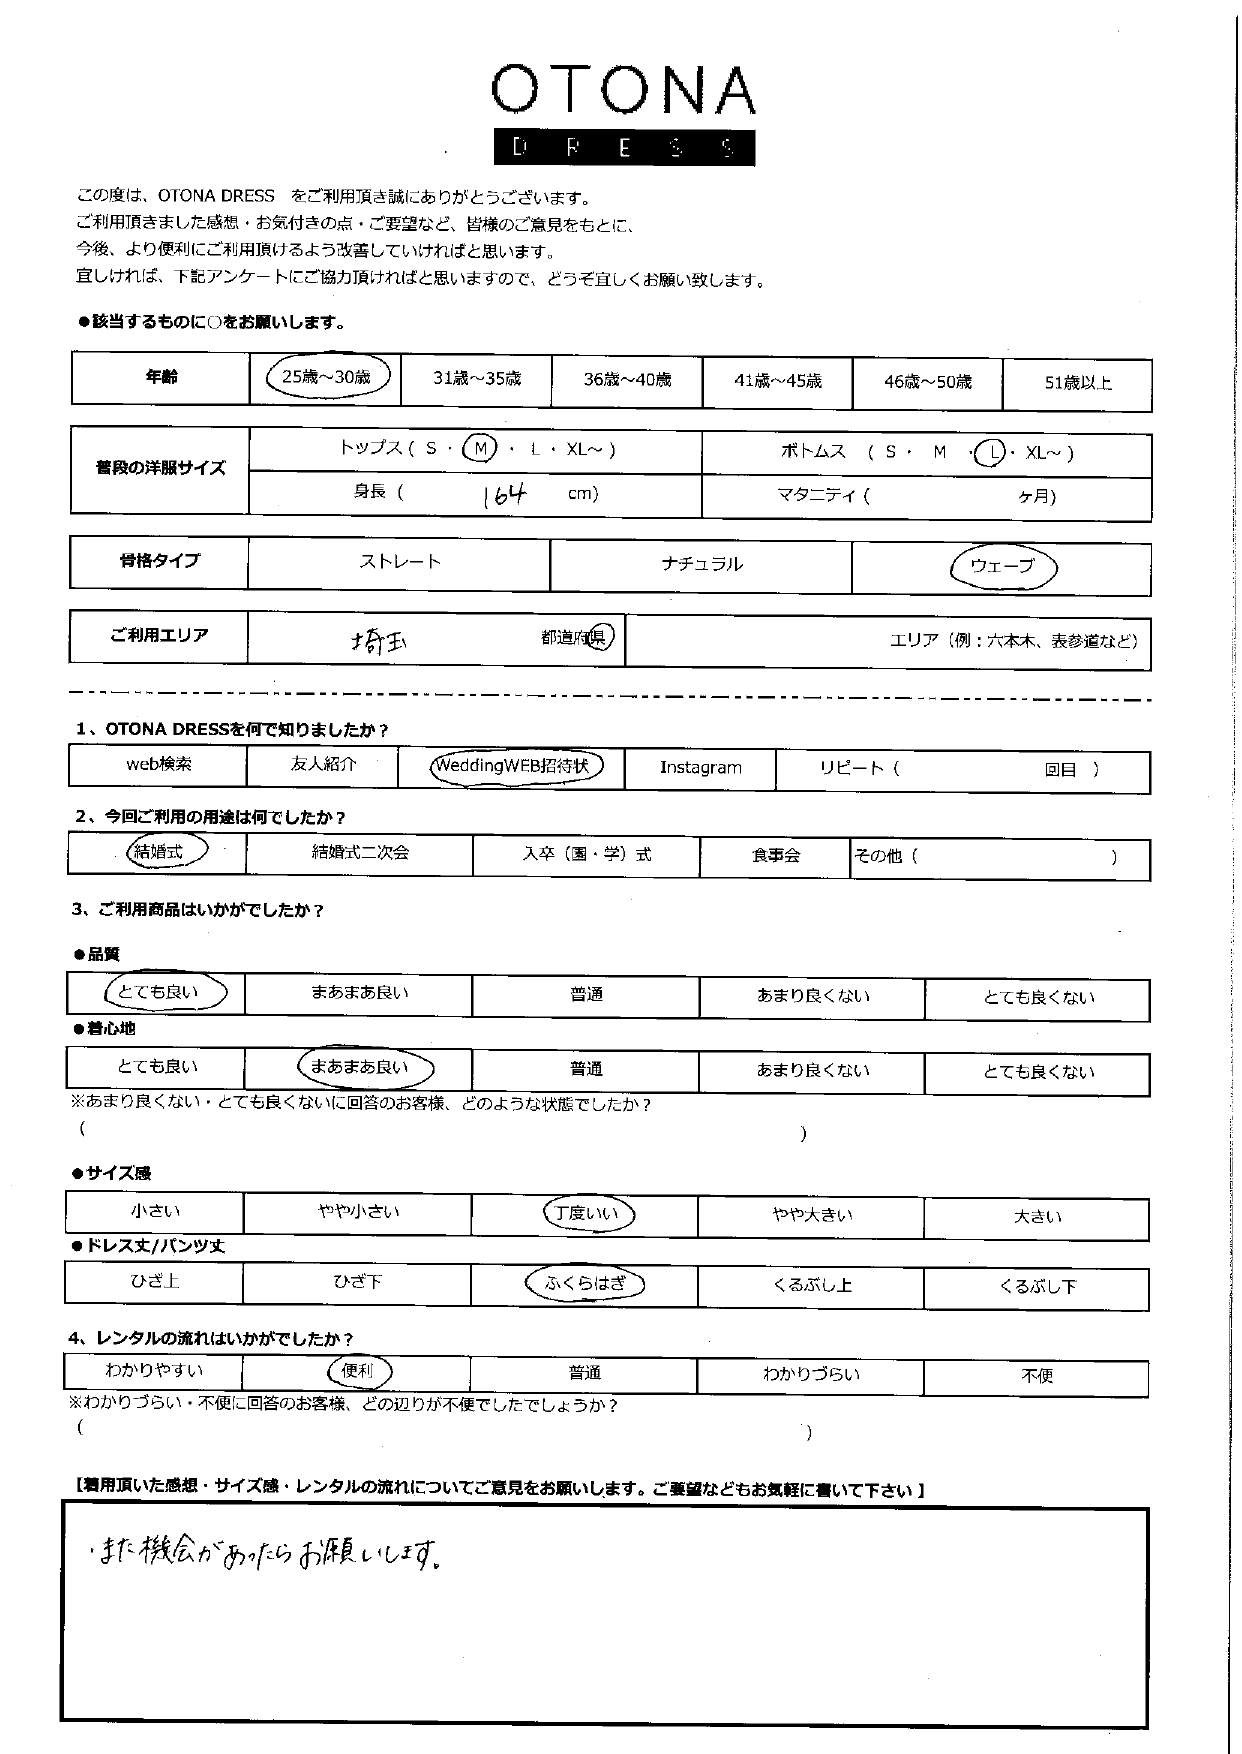 OTONA
DRESS
この度は、OTONA DRESS　をご利用頂き誠にありがとうございます。
ご利用頂きました感想・お気付きの点・ご要望など、皆様のご意見をもとに、
今後、より便利にご利用頂けるよう改善していければと思います。
宜しければ、下記アンケートにご協力頂ければと思いますので、どうぞ宜しくお願い致します。
●該当するものに○をお願いします。
年齢 25歳～30歳 31歳～35歳 36歳～40歳 41歳～45歳 46歳～50歳 51歳以上
普段の洋服サイズ トップス ( S ・ M ・ L ・ XL～ ) ボトムス ( S ・ M ・ L ・ XL～ )
身長 ( 164 cm) マタニティ ( ヶ月)
骨格タイプ ストレート ナチュラル ウェーブ
ご利用エリア 埼玉 都道府県 エリア（例：六本木、表参道など）
1、OTONA DRESSを何で知りましたか？
web検索 友人紹介 WeddingWEB招待状 Instagram リピート ( 回目 )
2、今回ご利用の用途は何でしたか？
結婚式 結婚式二次会 入卒（園・学）式 食事会 その他 ( )
3、ご利用商品はいかがでしたか？
●品質
とても良い まあまあ良い 普通 あまり良くない とても良くない
●着心地
とても良い まあまあ良い 普通 あまり良くない とても良くない
※あまり良くない・とても良くないに回答のお客様、どのような状態でしたか？
( )
●サイズ感
小さい やや小さい 丁度いい やや大きい 大きい
●ドレス丈/パンツ丈
ひざ上 ひざ下 ふくらはぎ くるぶし上 くるぶし下
4、レンタルの流れはいかがでしたか？
わかりやすい 便利 普通 わかりづらい 不便
※わかりづらい・不便に回答のお客様、どの辺りが不便でしたでしょうか？
( )
【着用頂いた感想・サイズ感・レンタルの流れについてご意見をお願いします。ご要望などもお気軽に書いて下さい】
・また機会があったらお願いします。